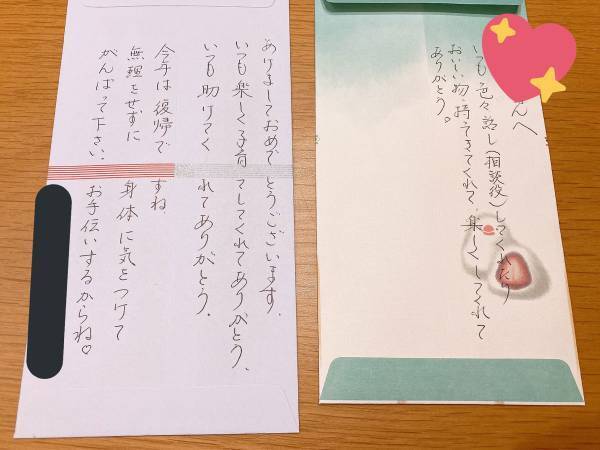 んへ
いつも色々話し(相談役)してくれたり
おいしい物、持ってきてくれて、楽しくしてくれて
ありがとう。
あけましておめでとうございます。
いつも楽しく子育てしてくれてありがとう、
いつも助けてくれてありがとう。
今年は復帰ですね、
無理をせずに身体に気をつけて
がんばって下さい。お手伝いするからね♡